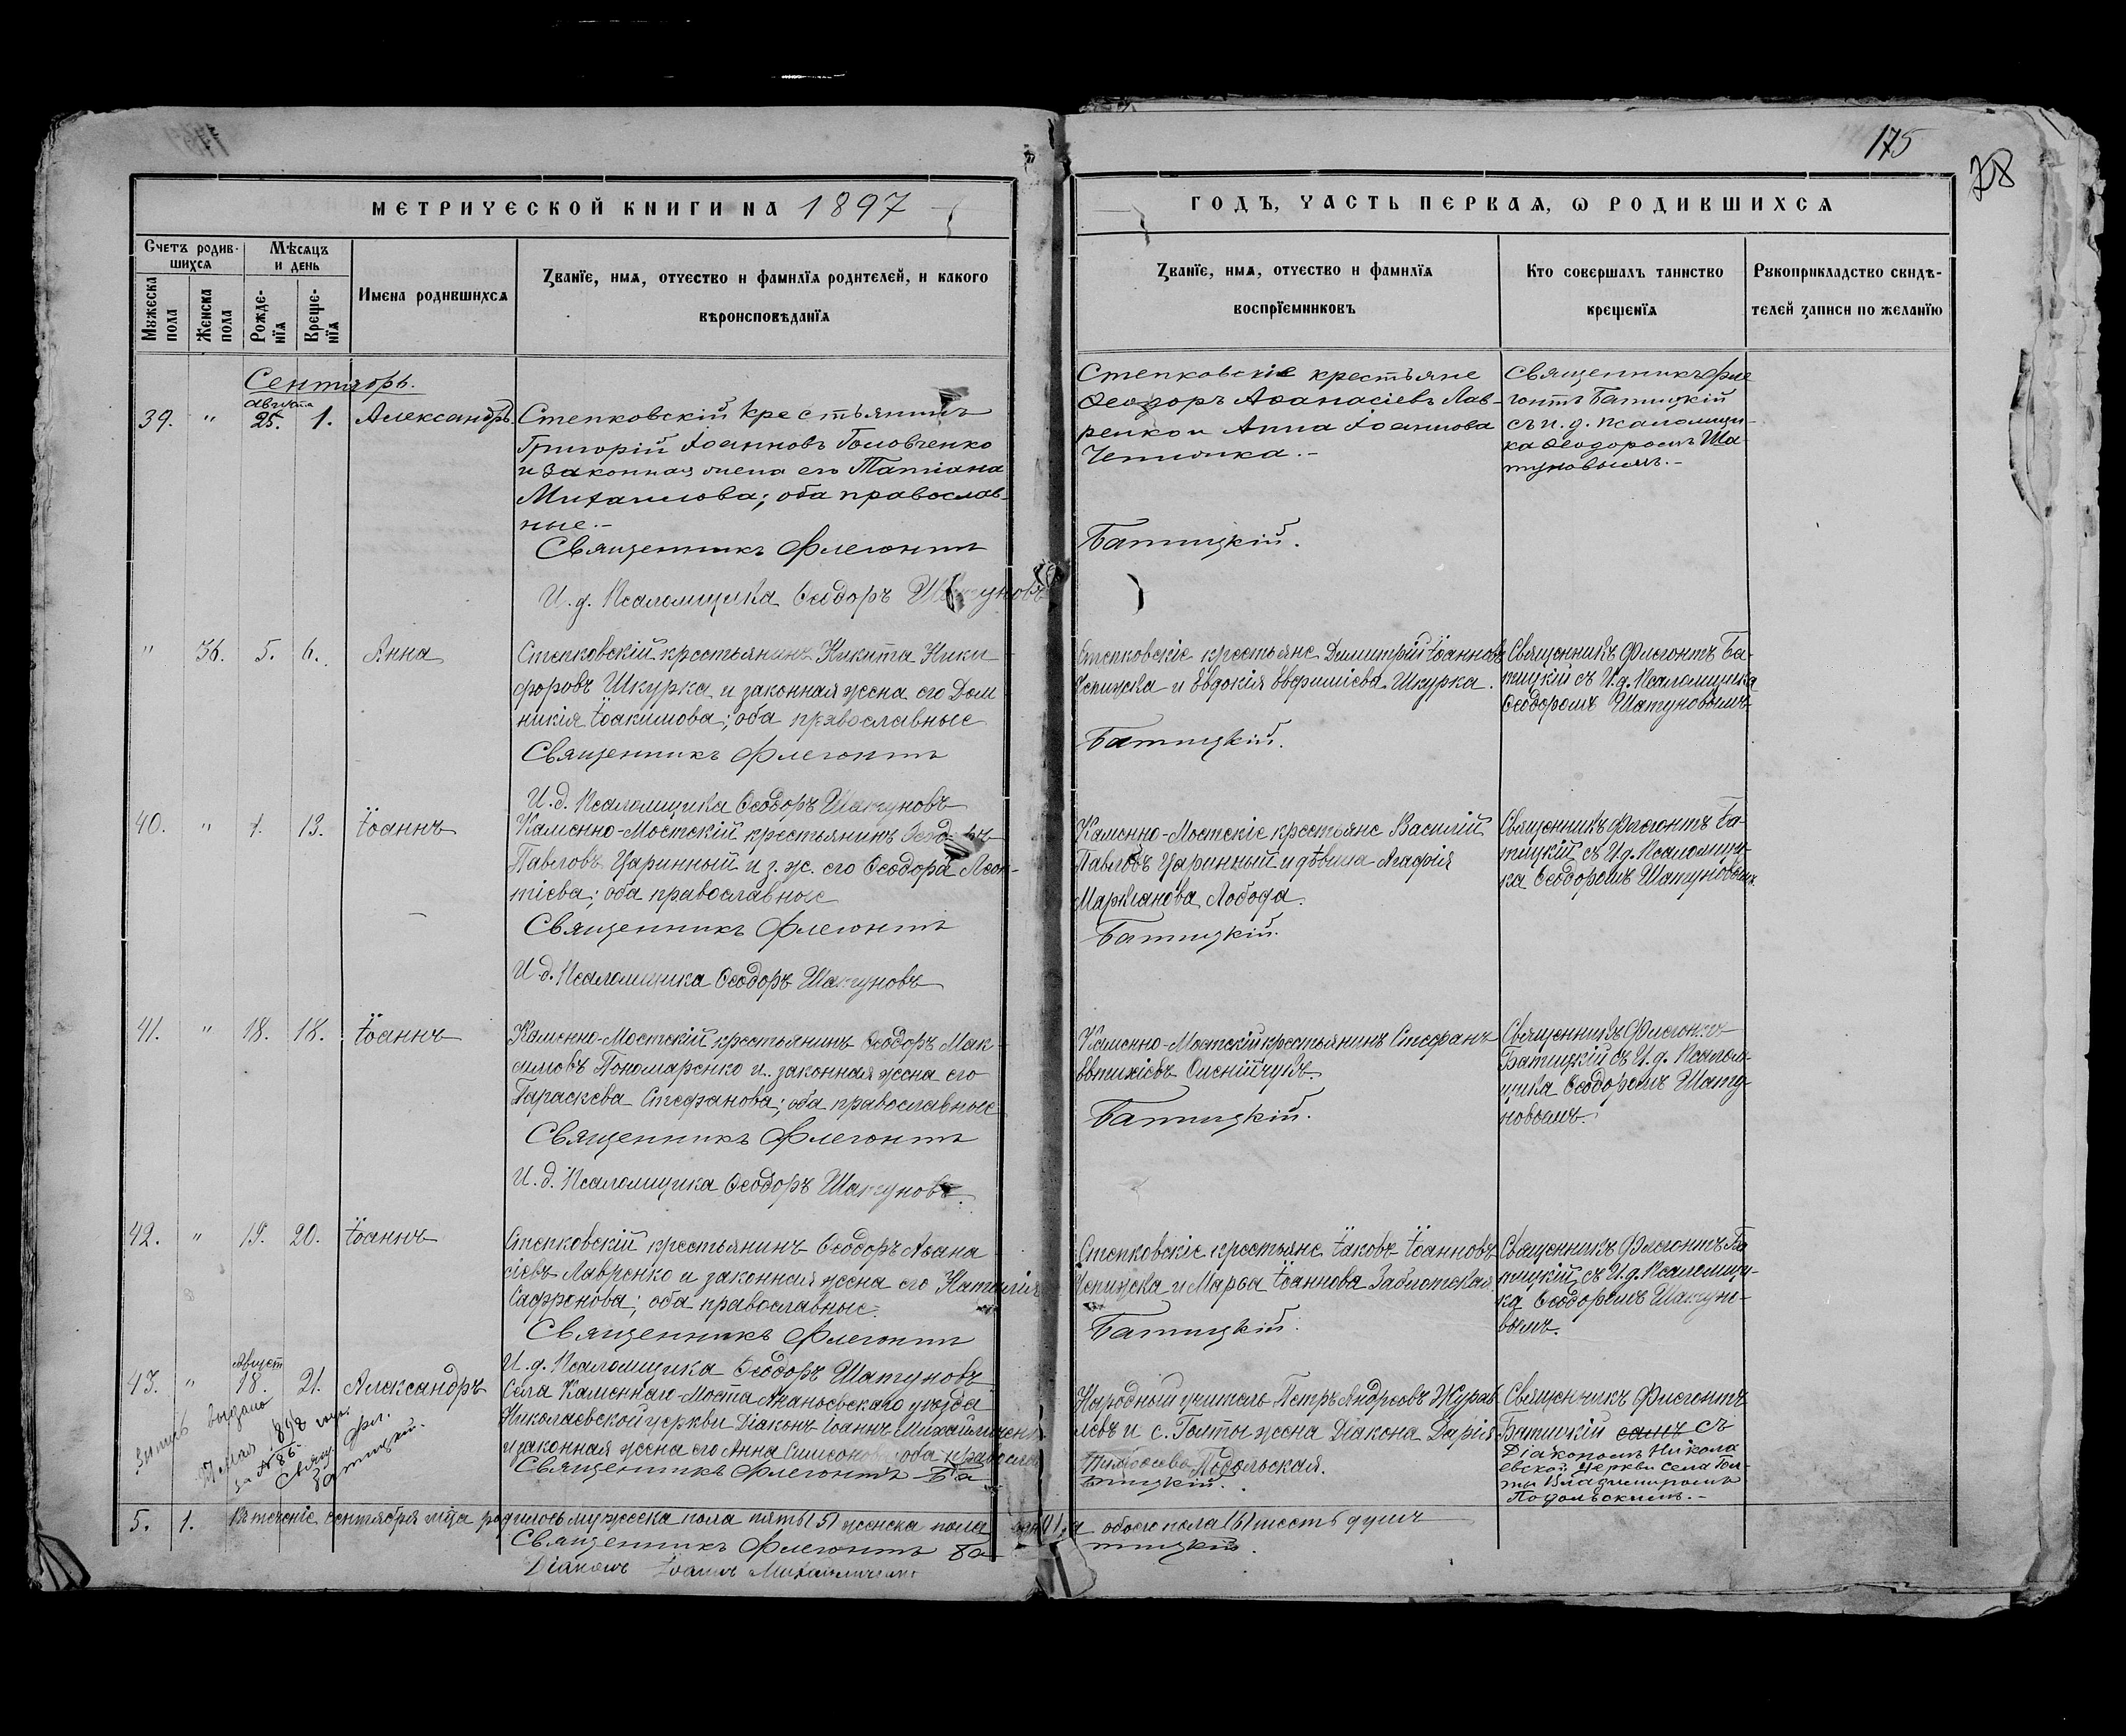 175
28
МЕТРИЧЕСКОЙ КНИГИ НА 1897
ГОДЪ, ЧАСТЬ ПЕРВАЯ, Ѡ РОДИВШИХСЯ
Счетъ родив-
шихся
Мѣсяцъ
и день
Мужеска
пола
Женска
пола
Рожде-
нїя
Креще-
нїя
Имена родившихся
Званїе, имя, отчество и фамилїя родителей, и какого
вѣроисповѣданїя
Званїе, имя, отчество и фамилїя
воспрїемниковъ
Кто совершалъ таинство
крещенїя
Рукоприкладство свидѣ-
телей записи по желанїю
Сентябрь.
августа
39. " 25. 1. Александръ
Степковскій крестьянинъ
Григорій Іоанновъ Головченко
и законная жена его Татіана
Михаилова; оба православ-
ные.-
Священникъ Флегонтъ
И. д. Псаломщика Ѳеодоръ Шатуновъ
Степковскіе крестьяне
Ѳеодоръ Аѳанасіевъ Лав-
ренко и Анна Іоаннова
Батицкій.
Священникъ Фле
гонтъ Батицкій
съ и. д. псаломщи-
ка Ѳеодоромъ Ша
туновымъ.-
" 36. 5. 6. Анна
Степковскій крестьянинъ Никита Ники-
форовъ Шкурка и законная жена его Дом
никія Іоакимова; оба православные
Священникъ Флегонтъ
И. д. Псаломщика Ѳеодоръ Шатуновъ
Степковскіе крестьяне Димитрій Іоанновъ
и Евдокія Евфиміева Шкурка.
Батицкій.
Священникъ Флегонтъ Ба-
тицкій съ И. д. Псаломщика
Ѳеодоромъ Шатуновымъ
40. " 13. Іоаннъ
Каменно-Мостскій крестьянинъ Ѳеодоръ
Павловъ Царинный и з. ж. его Ѳеодора Леон-
тіева; оба православные
Священникъ Флегонтъ
И. д. Псаломщика Ѳеодоръ Шатуновъ
Каменно-Мостскіе крестьяне Василій
Павловъ Царинный и дѣвица Агафія
Лобода.
Батицкій.
Священникъ Флегонтъ Ба-
тицкій съ И. д. Псаломщи-
ка Ѳеодоромъ Шатуновымъ
41. " 18. 18. Іоаннъ
Каменно-Мостскій крестьянинъ Ѳеодоръ Мак-
симовъ Пономаренко и законная жена его
Параскева Стефанова; оба православные
Священникъ Флегонтъ
И. д. Псаломщика Ѳеодоръ Шатуновъ.
Каменно-Мостскій крестьянинъ Стефанъ
Евтихіевъ Олейничукъ.
Батицкій.
Священникъ Флегонтъ
Батицкій съ И. д. Псалом-
щика Ѳеодоромъ Шату-
новымъ.
42. " 19. 20. Іоаннъ
Степковскій крестьянинъ Ѳеодоръ Аѳана
сіевъ Лавренко и законная жена его Наталія
Сафронова; оба православные.
Священникъ Флегонтъ
И. д. Псаломщика Ѳеодоръ Шатуновъ
Степковскіе крестьяне Іаковъ Іоанновъ
и Марѳа Іоаннова Заболотская
Батицкій.
Священникъ Флегонтъ Ба
тицкій съ И. д. Псаломщи-
ка Ѳеодоромъ Шатуно-
вымъ.
Август
43. " 18. 21. Александръ
Села Каменнаго-Моста Ананьевскаго уѣзда
Николаевской церкви Діаконъ Іоаннъ
и законная жена его Анна Симеонова оба православ
Священникъ Флегонтъ Ба
Народный учитель Петръ Андреевъ Журав
левъ и с. Голты жена Діакона Дарія
Подольская.
тицкій.
Священникъ Флегонтъ
Батицкій съ
Діакономъ Никола
евской церкви села Гол-
ты Владимиромъ
Подольскимъ.-
выдано
Мая 1898 года
за № 86
Свящ. Фл.
Батицкій.
5. 1. Въ теченіе сентября мѣца родилось мужеска пола пять (5) женска пола одна обоего пола (6) шесть душъ
Священникъ Флегонтъ Ба
тицкій.
Діаконъ Іоаннъ